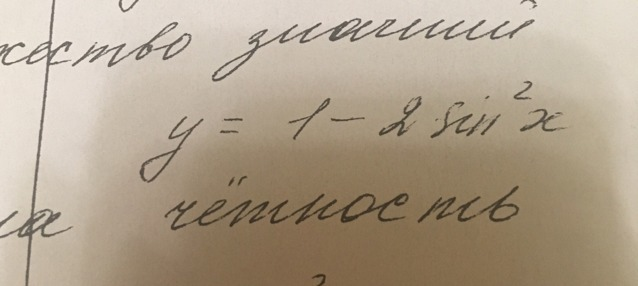 жество значений
y = 1 - 2 sin²x
на чётность
2